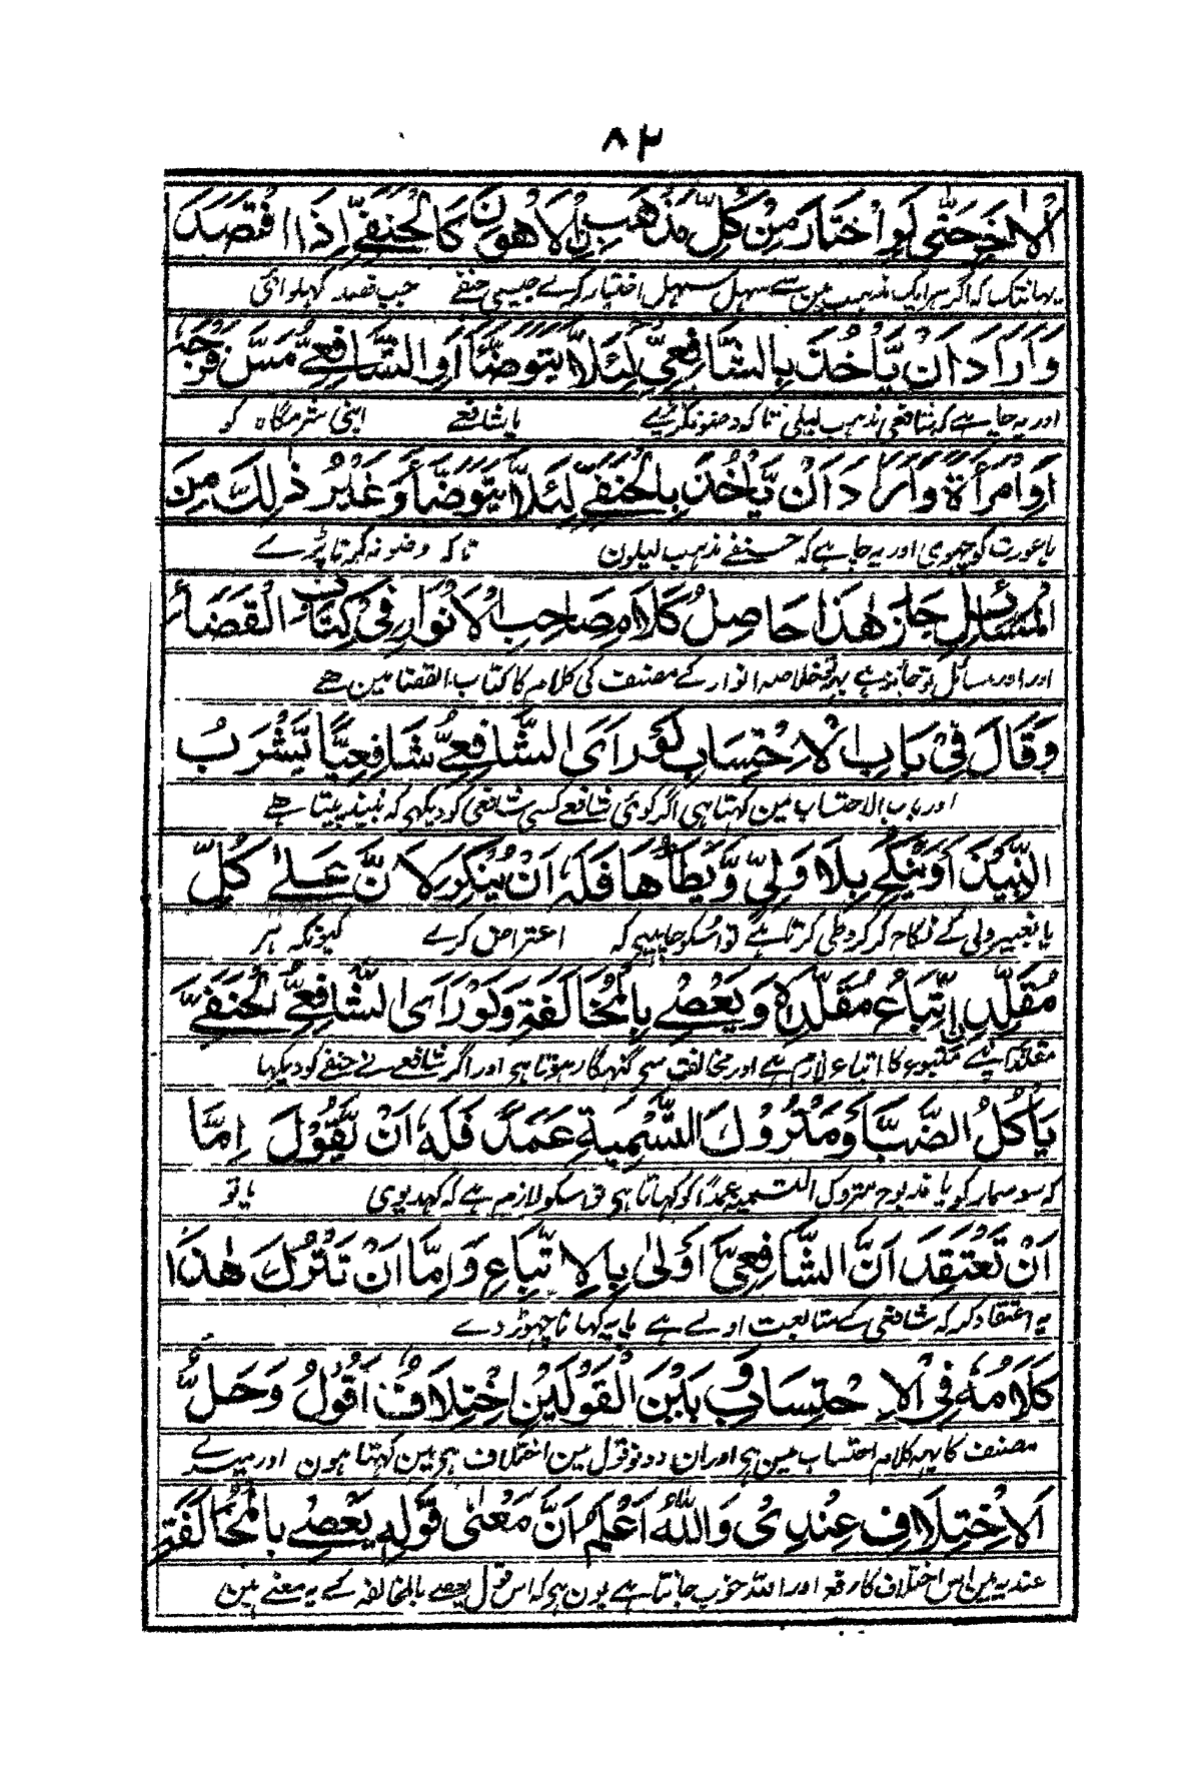 ۸۲
اَلْاٰخَرِ حَتّٰى لَوِ اخْتَارَ مِنْ كُلِّ مَذْهَبٍ بِالْاَهْوَنِ كَالْحَنَفِيِّ اِذَا افْتَصَدَ
یہانتک کہ اگر ہر ایک مذہب مین سے سہل سہل اختیار کرلے جیسی حنفے جب فصد کہلوائی
وَاَرَادَ اَنْ يَّاْخُذَ بِالشَّافِعِيِّ لِئَلَّا يَتَوَضَّاَ اَوِ الشَّافِعِيِّ مَسَّ فَرْجَهٗ
اور یہ چاہے کہ شافعی مذہب لیلی تاکہ وضو نکرنا پڑے یا شافعے اپنی شرمگاہ کو
اَوِ امْرَأَةً وَاَرَادَ اَنْ يَّاْخُذَ بِالْحَنَفِيِّ لِئَلَّا يَتَوَضَّاَ وَغَيْرُ ذٰلِكَ مِنَ
یا عورت کو چہوی اور یہ چاہے کہ حنفے مذہب لیلون تاکہ وضو نہ کرنا پڑے
الْمَسَائِلِ جَازَ هٰذَا حَاصِلُ كَلَامِ صَاحِبِ الْاَنْوَارِ فِيْ كِتَابِ الْقَضَاءِ
اور اور مسائل تو جائز ہے یہ تو خلاصہ انوار کے مصنف کی کلام کا کتاب القضا مین ہے
وَقَالَ فِيْ بَابِ الْاِحْتِسَابِ لَوْ رَاَى الشَّافِعِيُّ شَافِعِيًّا يَّشْرَبُ
اور باب الاحتساب مین کہتا ہی اگر کوئی شافعے کسی شافعی کو دیکہی کہ نبیذ پیتا ہے
النَّبِيْذَ اَوْ يَنْكِحُ بِلَا وَلِيٍّ وَّيَطَأُهَا فَلَهٗ اَنْ يُّنْكِرَ لِاَنَّ عَلٰى كُلِّ
یا بغیر ولی کے نکاح کرکر وطی کرتا ہے تو اسکو چاہییکہ اعتراض کرے کیونکہ ہر
مُقَلِّدٍ اِتِّبَاعُ مُقَلَّدِهٖ وَيَعْصِيْ بِالْمُخَالَفَةِ وَلَوْ رَاَى الشَّافِعِيُّ الْحَنَفِيَّ
مقلد کو اپنے متبوع کا اتباع لازم ہے اور مخالفت سے گنہگار ہوتا ہی اور اگر شافعے نے حنفے کو دیکہا
يَاْكُلُ الضَّبَّ اَوْ مَتْرُوْكَ التَّسْمِيَةِ عَمَدًا فَلَهٗ اَنْ يَّقُوْلَ اِمَّا
کہ سوسمار کو یا مذبوح متروک التسمیہ عمداً کو کہاتا ہی تو اسکو لازم ہے کہ کہدیوی یا تو
اَنْ تَعْتَقِدَ اَنَّ الشَّافِعِيَّ اَوْلٰى بِالْاِتِّبَاعِ وَاِمَّا اَنْ تَتْرُكَ هٰذَا
یہ اعتقاد کر کہ شافعی کے متابعت اولے ہے یا یہ کہانا چہوڑ دے
كَلَامُهٗ فِي الْاِحْتِسَابِ وَبَيْنَ الْقَوْلَيْنِ اخْتِلَافٌ اَقُوْلُ وَحَلُّ
مصنف کا یہہ کلام احتساب مین ہی اور ان دونو قول مین اختلاف ہی مین کہتا ہون اور میرے
الْاِخْتِلَافِ عِنْدِيْ وَاللّٰهُ اَعْلَمُ اَنَّ مَعْنٰى قَوْلِهٖ يَعْصِيْ بِالْمُخَالَفَةِ
عندیہ مین اس اختلاف کا رفع اور اللہ خوب جانتا ہے یون ہی کہ اس قول یعصے بالمخالفۃ کے یہ معنے ہین